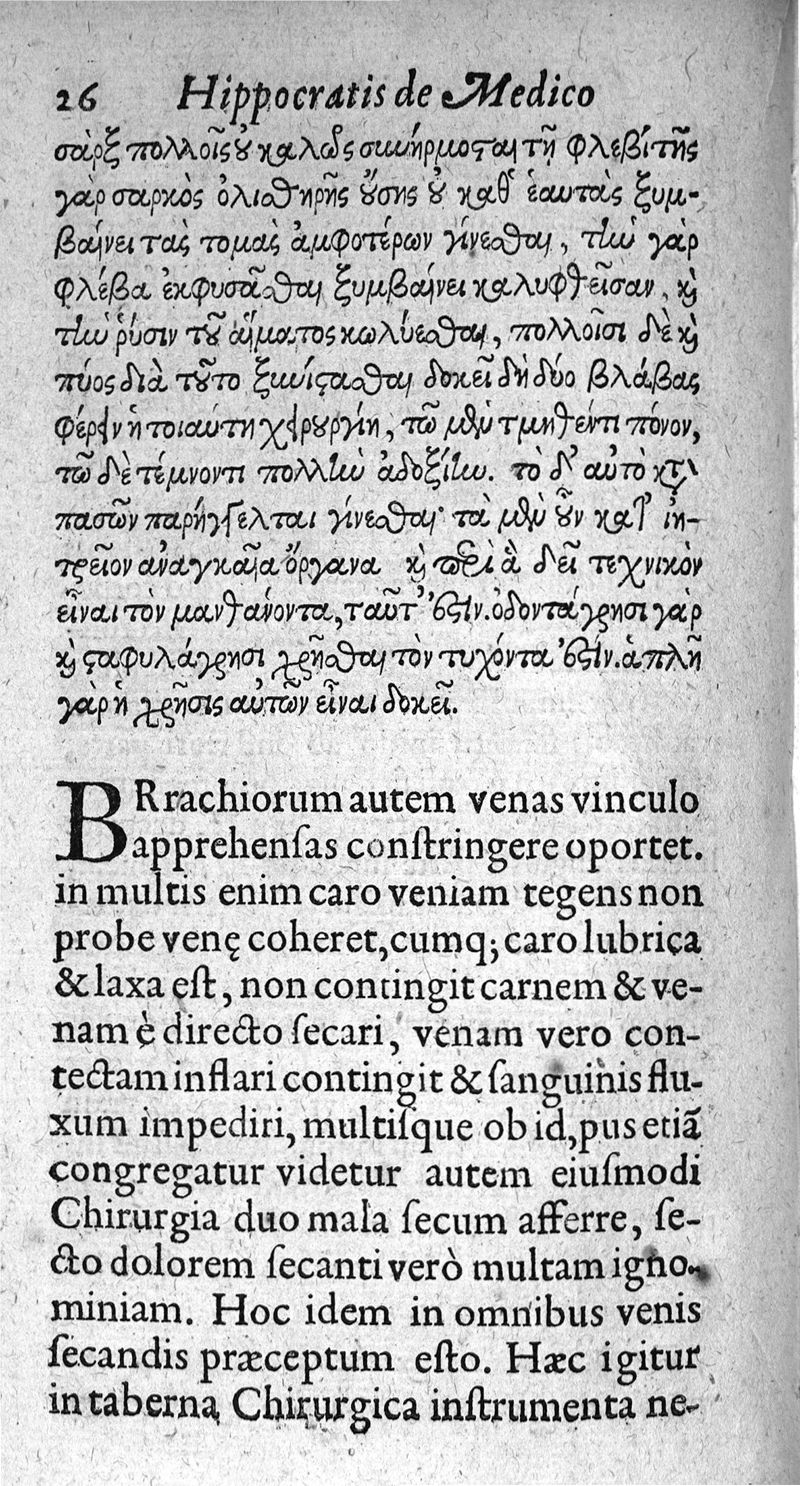 26 Hippocratis de Medico
σὰρξ πολλοῖς ȣ καλῶς συνήρμοσται τῇ φλεβί τῆς
γὰρ σαρκὸς ὀλισθηρῆς ȣ̓́σης ȣ καθ' ἑαυτὰς ξυμ-
βαίνει τὰς τομὰς ἀμφοτέρων γίνεσθαι, τὴν γὰρ
φλέβα ἐκφυσᾶσθαι ξυμβαίνει καλυφθεῖσαν, ϗ
τὴν ῥύσιν τȣ͂ αἵματος κωλύεσθαι, πολλοῖσι δὲ ϗ
πύος διὰ τȣ͂το ξυνίστασθαι δοκεῖ δὴ δύο βλάβας
φέρειν ἡ τοιαύτη χειρȣργίη, τῷ μὲν τμηθέντι πόνον,
τῷ δὲ τέμνοντι πολλὴν ἀδοξίην. τὸ δ' αὐτὸ κατὰ
πασῶν παρήγγελται γίνεσθαι· τὰ μὲν ȣ̓͂ν κατ' ἰη-
τρεῖον ἀναγκαῖα ὄργανα ϗ περὶ ἃ δεῖ τεχνικὸν
εἶναι τὸν μανθάνοντα, ταῦτ' ἐστίν. ὀδοντάγρησι γὰρ
ϗ σταφυλάγρησι χρῆσθαι τὸν τυχόντα ἐστίν. ἁπλῆ
γὰρ ἡ χρῆσις αὐτῶν εἶναι δοκεῖ.
BRrachiorum autem venas vinculo
apprehenſas conſtringere oportet.
in multis enim caro veniam tegens non
probe venę coheret, cumq; caro lubrica
& laxa eſt, non contingit carnem & ve-
nam è directo ſecari, venam vero con-
tectam inflari contingit & ſanguinis flu-
xum impediri, multiſque ob id, pus etiã
congregatur videtur autem eiuſmodi
Chirurgia duo mala ſecum afferre, ſe-
cto dolorem ſecanti verò multam igno-
miniam. Hoc idem in omnibus venis
ſecandis præceptum eſto. Hæc igitur
in taberna Chirurgica inſtrumenta ne-